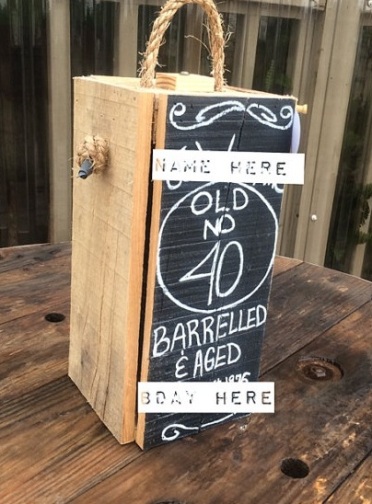 NAME HERE
OLD
NO
40
BARRELLED
& AGED
1975
BDAY HERE